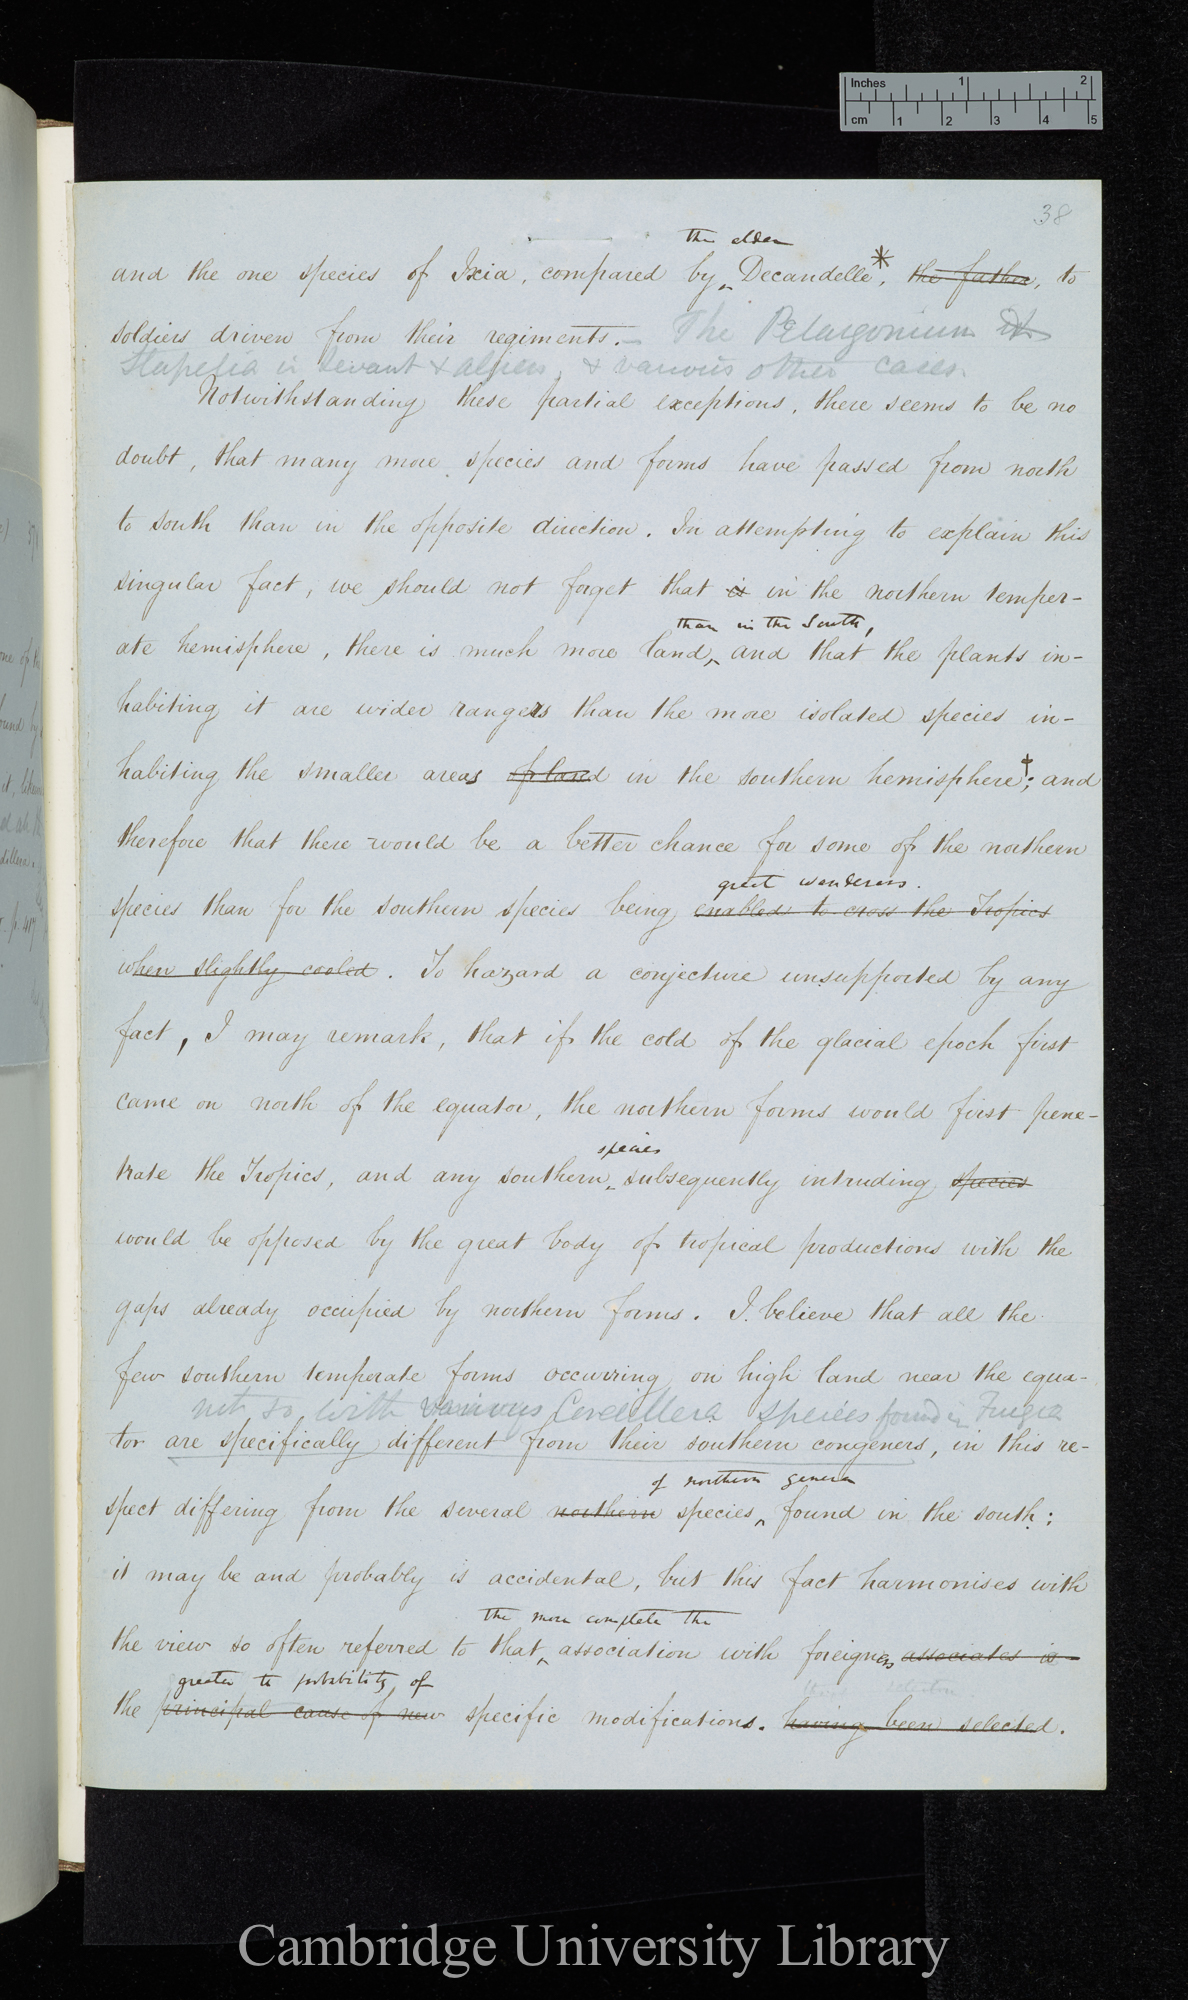 Inches 1 2
cm 1 2 3 4 5
38
the elder
and the one species of Ixia, compared by Decandelle*, the father, to
soldiers driven from their regiments.— The Pelargonium &
Stapelia in Levant & alpers, & various other cases.
Notwithstanding these partial exceptions, there seems to be no
doubt, that many more species and forms have passed from north
to south than in the opposite direction. In attempting to explain this
singular fact, we should not forget that is in the northern temper-
than in the South,
ate hemisphere, there is much more land, and that the plants in-
habiting it are wider rangers than the more isolated species in-
habiting the smaller areas of land in the southern hemisphere†; and
therefore that there would be a better chance for some of the northern
great wanderers.
species than for the southern species being enabled to cross the Tropics
when slightly cooled. To hazard a conjecture unsupported by any
fact, I may remark, that if the cold of the glacial epoch first
came on north of the equator, the northern forms would first pene-
species
trate the Tropics, and any southern subsequently intruding species
would be opposed by the great body of tropical productions with the
gaps already occupied by northern forms. I believe that all the
few southern temperate forms occurring on high land near the equa-
not so with various Cordillera species found in Fuegia
tor are specifically different from their southern congeners, in this re-
of northern genera
spect differing from the several northern species, found in the south:
it may be and probably is accidental, but this fact harmonises with
the more complete the
the view so often referred to that association with foreigners associates is
greater the probability of
the principal cause of new specific modifications. having been selected.
Cambridge University Library